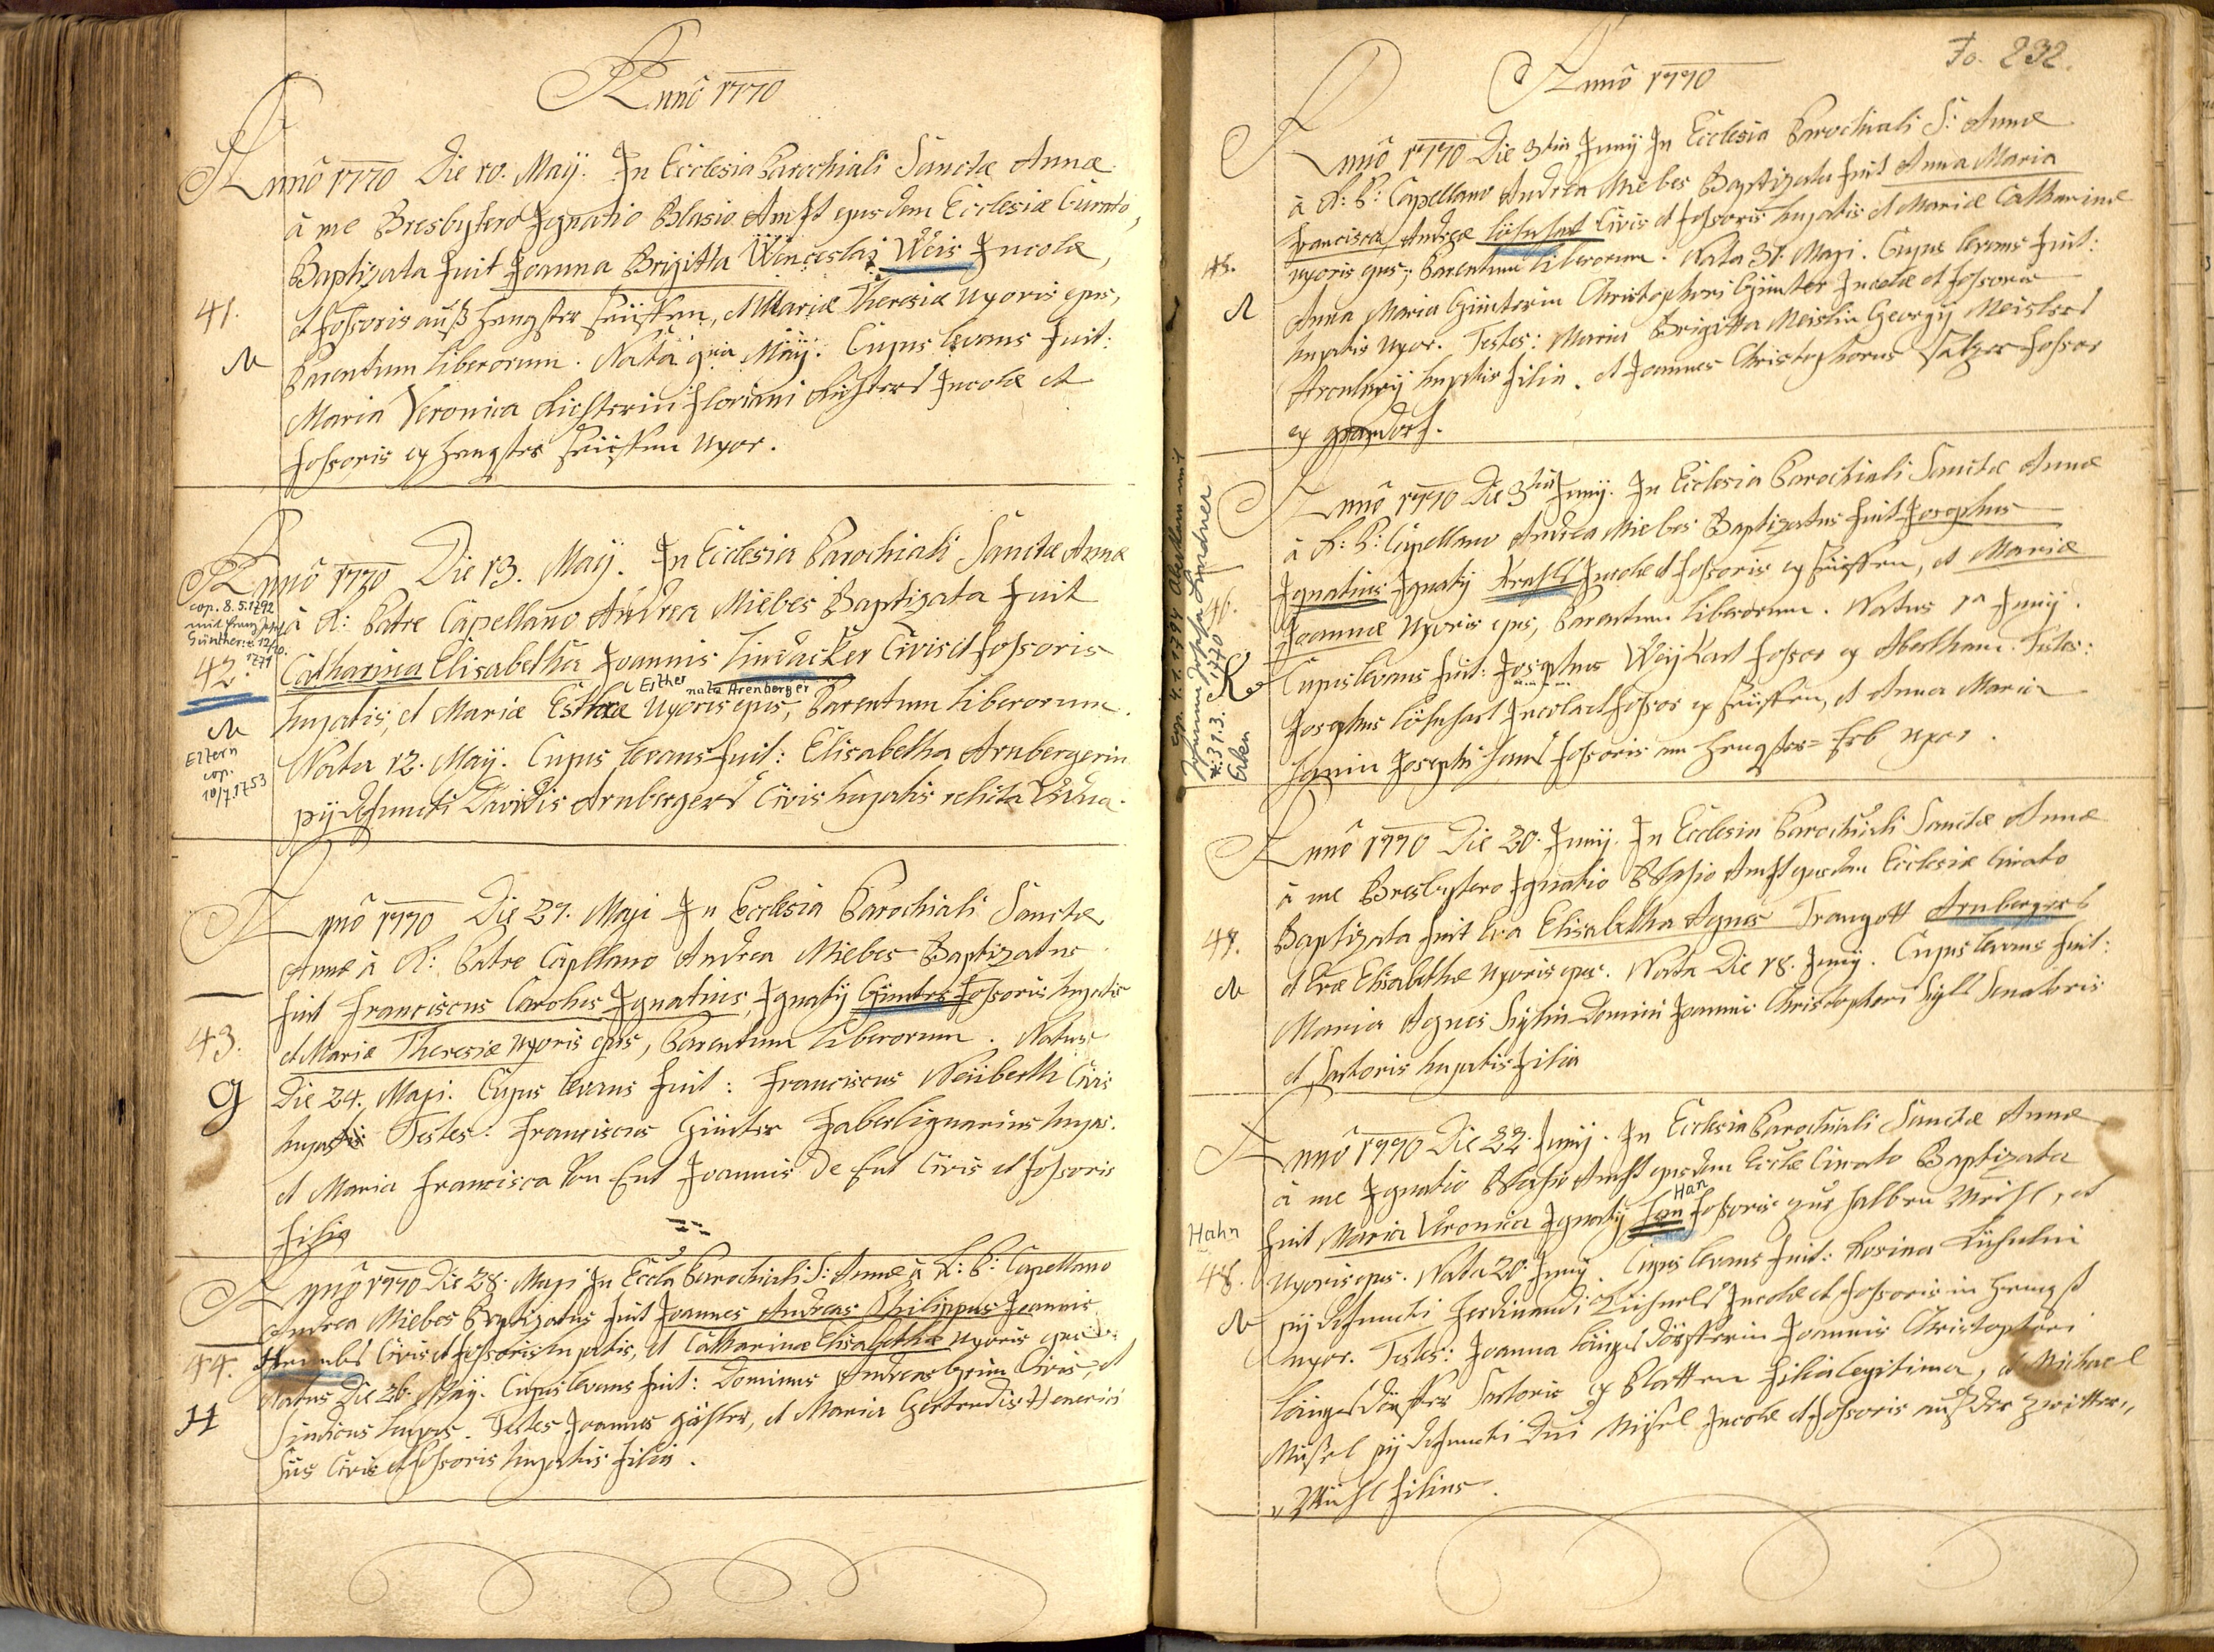 Annô 1770
Annô 1770 Die 10. Maÿ. In Ecclesia Parochiali Sanctæ Annæ
à me Presbytero Ignatio Blasio Anst ejusdem Ecclesiæ Curato,
Baptizata fuit Joanna Brigitta Wenceslai Weis Incolæ,
41.
et fossoris auß Hengster Heüssern, et Mariæ Theresiæ Uxoris ejus,
Parentum Liberorum. Nata 9na Maÿ. Cujus levans fuit:
Maria Veronica Richterin Floriani Richters Incolæ et
fossoris ex Hengster Heüssern Uxor.
Annô 1770 Die 13. Maÿ. In Ecclesia Parochiali Sanctæ Annæ
cop. 8.5.1792
mit Franz Josef
Günther: * 12/10.
1771
à R: Patre Capellano Andrea Miebes Baptizata fuit
42.
Catharina Elisabetha Joannis Lindacker Civis et fossoris
Esther nata Arenberger
hujatis, et Mariæ Estheræ Uxoris ejus, Parentum Liberorum.
Eltern
cop.
10/7.1753
Nata 12. Maÿ. Cujus levans fuit: Elisabetha Arnbergerin
pÿ defuncti Davidis Arnbergers Civis hujatis relicta Vidua.
Annô 1770 Die 27. Maji In Ecclesia Parochiali Sanctæ
Annæ à R: Patre Capllano Andrea Miebes Baptizatus
fuit Franciscus Carolus Ignatius, Ignatÿ Günter fossoris hujatis
43.
et Mariæ Theresiæ Uxoris ejus, Parentum Liberorum. Natus
g
Die 24. Maji. Cujus levans fuit: Franciscus Neüberth Civis
hujatis Testes: Franciscus Günter Faber lignarius hujas.
et Maria Francisca Von Ent Joannis De Ent Civis et fossoris
filia
Annô 1770 Die 28. Maji In Eccla Parochiali S: Annæ à R: P: Capellano
Andrea Miebes Baptizatus fuit Joannes Andreas Philippus Joannis
44.
Civis et fossoris hujatis, et Catharinæ Elisabethæ Uxoris ejus.
Natus Die 26. Maÿ. Cujus levans fuit: Dominus Andreas Grün Civis, et
H
Sindicus hujas. Testes Joannes, et Maria Gertrudis Henerici
Süs Civis et fossoris hujatis filia.
Fo. 232.
Annô 1770
Annô 1770 Die 3tia Junÿ In Ecclesia Parochiali S: Annæ
à R: P: Capellano Andrea Miebes Baptizata fuit Anna Maria
Francisca Andreæ Löhnhart Civis et fossoris hujatis et Mariæ Catharinæ
45.
Uxoris ejus, Parentum Liberorum. Nata 31. Maji. Cujus levans fuit:
Anna Maria Günterin Christophori Günter Incolæ et fossoris
hujatis Uxor. Testes: Maria Brigitta Meislin Georgÿ Meislers
Arculariÿ hujatis filia. et Joannes Christophorus fossor
ex
Annô 1770 Die 3tia Junÿ. In Ecclesia Parochiali Sanctæ Annæ
à R: P: Capellano Andrea Miebes Baptizatus fuit Josephus
Ignatius Ignatÿ Incolæ et fossoris ex Heüssern, et Mariæ
46.
Joannæ Uxoris ejus, Parentum Liberorum. Natus 1a Junÿ.
cop. 4.1.1794 Abertham mit
Johanna Josefa Lindner
*: 31.3.1770
Cujus levans fuit: Josephus fossor ex Abertham. Testes:
Josephus Löhnhart Incola et fossor ex Heüssern, et Anna Maria
Josephi fossoris am Hengster = Erb Uxor.
Annô 1770 Die 20. Junÿ. In Ecclesia Parochiali Sanctæ Annæ
à me Presbytero Ignatio Blasio Anst ejusdem Ecclesiæ Curato
47.
Baptizata fuit Eva Elisabetha Agnes Traugott Arnbergers
et Evæ Elisabethæ Uxoris ejus. Nata Die 18. Junÿ. Cujus levans fuit:
Maria Agnes Domini Joannis Christophori Senatoris
et Sartoris hujatis filia
Annô 1770 Die 22. Junÿ. In Ecclesia Parochiali Sanctæ Annæ
à me Ignatio Blasio Anst ejusdem Eccliæ Curato Baptizata
Han
Hahn
fuit Maria Veronica Ignatÿ Han fossoris zur halben Meihl, et
48.
Uxoris ejus. Nata 20. Junÿ. Cujus levans fuit: Rosina
pÿ defuncti Ferdinandi Incolæ et fossoris in Hengst
Uxor. Testes: Joanna Joannis Christophori
Sartoris ex Platten filia legitima, et Michael
pÿ defuncti Incolæ et fossoris auß der Zwitter,,
Mühl filius.